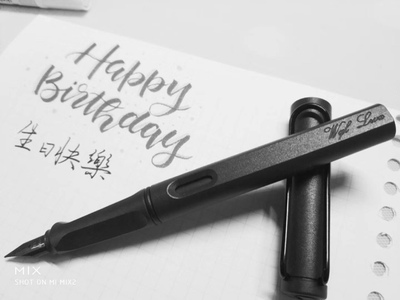 Happy
Birthday
生日快樂
MIX
SHOT ON MI MIX2